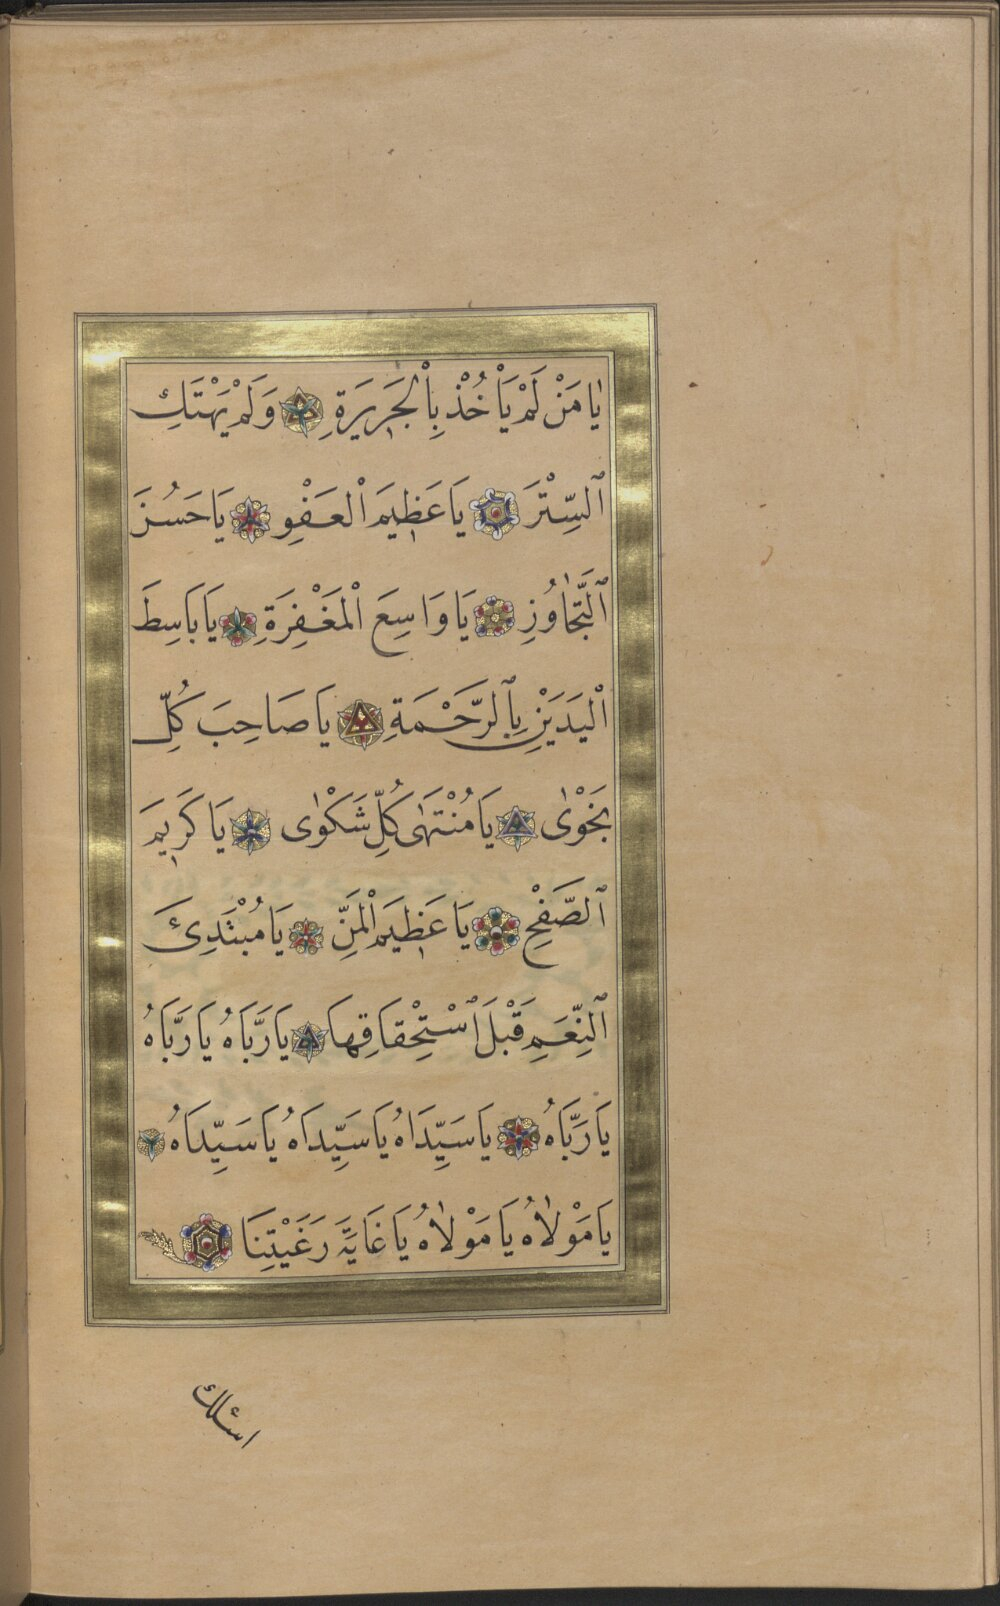 يَا مَنْ لَمْ يَأْخُذْ بِالْجَرِيرَةِ وَلَمْ يَهْتِكِ
ٱلسِّتْرَ يَا عَظِيمَ الْعَفْوِ يَا حَسَنَ
ٱلتَّجَاوُزِ يَا وَاسِعَ الْمَغْفِرَةِ يَا بَاسِطَ
الْيَدَيْنِ بِٱلرَّحْمَةِ يَا صَاحِبَ كُلِّ
نَجْوٰى يَا مُنْتَهٰى كُلِّ شَكْوٰى يَا كَرِيمَ
ٱلصَّفْحِ يَا عَظِيمَ الْمَنِّ يَا مُبْتَدِئَ
ٱلنِّعَمِ قَبْلَ ٱسْتِحْقَاقِهَا يَا رَبَّاهُ يَا رَبَّاهُ
يَا رَبَّاهُ يَا سَيِّدَاهُ يَا سَيِّدَاهُ يَا سَيِّدَاهُ
يَا مَوْلَاهُ يَا مَوْلَاهُ يَا غَايَةَ رَغْبَتِنَا
اسئلك